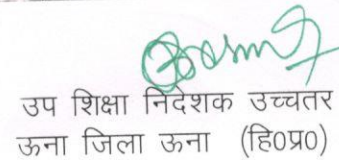 उप शिक्षा निदेशक उच्चतर
ऊना जिला ऊना (हि०प्र०)